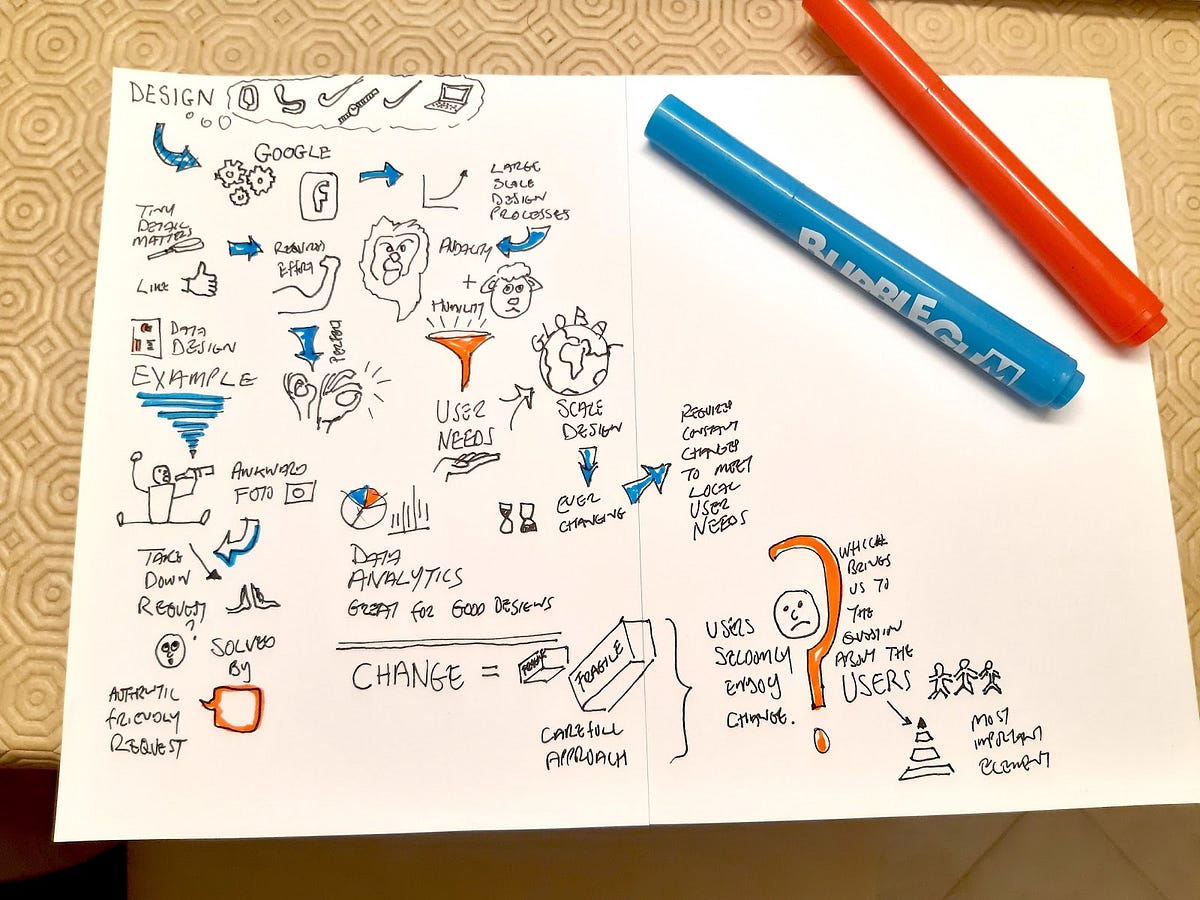 DESIGN
GOOGLE
f
LARGE
SCALE
DESIGN
PROCESSES
TINY
DETAIL
MATTERS
REQUIRES
EFFORT
AUDACITY
+
HUMILITY
LIKE
DATA
DESIGN
PERFECT
EXAMPLE
USER
NEEDS
GLOBAL
SCALE
DESIGN
EVER
CHANGING
REQUIRES
CONSTANT
CHANGES
TO MEET
LOCAL
USER
NEEDS
AWKWARD
FOTO
TAKE
DOWN
REQUEST
?
SOLVED
BY
AUTHENTIC
FRIENDLY
REQUEST
DATA
ANALYTICS
GREAT FOR GOOD DESIGNS
CHANGE =
FRAGILE
FRAGILE
CAREFULL
APPROACH
USERS
SELDOMLY
ENJOY
CHANGE.
?
WHICH
BRINGS
US TO
THE
QUESTION
ABOUT THE
USERS
MOST
IMPORTANT
ELEMENT
BUBBLEGUM